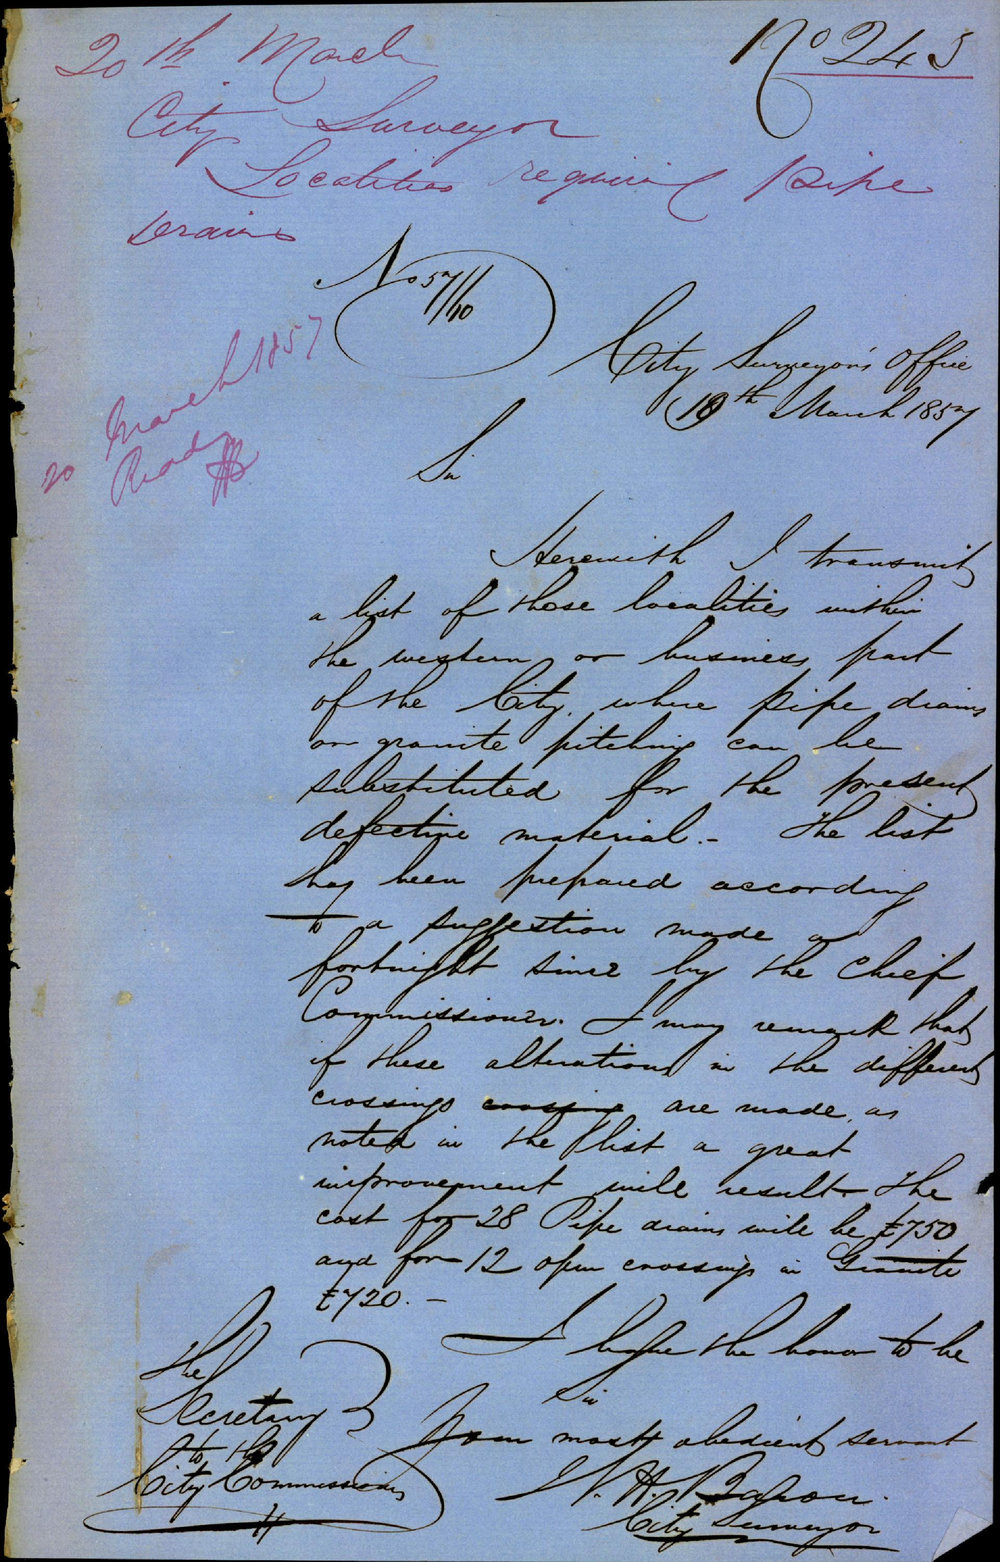 No 245
20th March
City Surveyor
Localities requiring pipe
drains
No 57/110
20 March 1857
Read
City Surveyor's Office
19th March 1857
Sir
Herewith I transmit
a list of those localities within
the western or business part
of the City, where pipe drains
or granite pitching can be
substituted for the present
defective material. - The list
has been prepared according
to a suggestion made a
fortnight since by the Chief
Commissioner. I may remark that
if these alterations in the different
crossings crossing are made, as
noted in the list a great
improvement will result. The
cost for 28 Pipe drains will be £750
and for 12 open crossings in Granite
£720. -
I have the honor to be
Sir
Your most obedient servant
W. H.
City Surveyor
The
Secretary
to the
City Commissioners